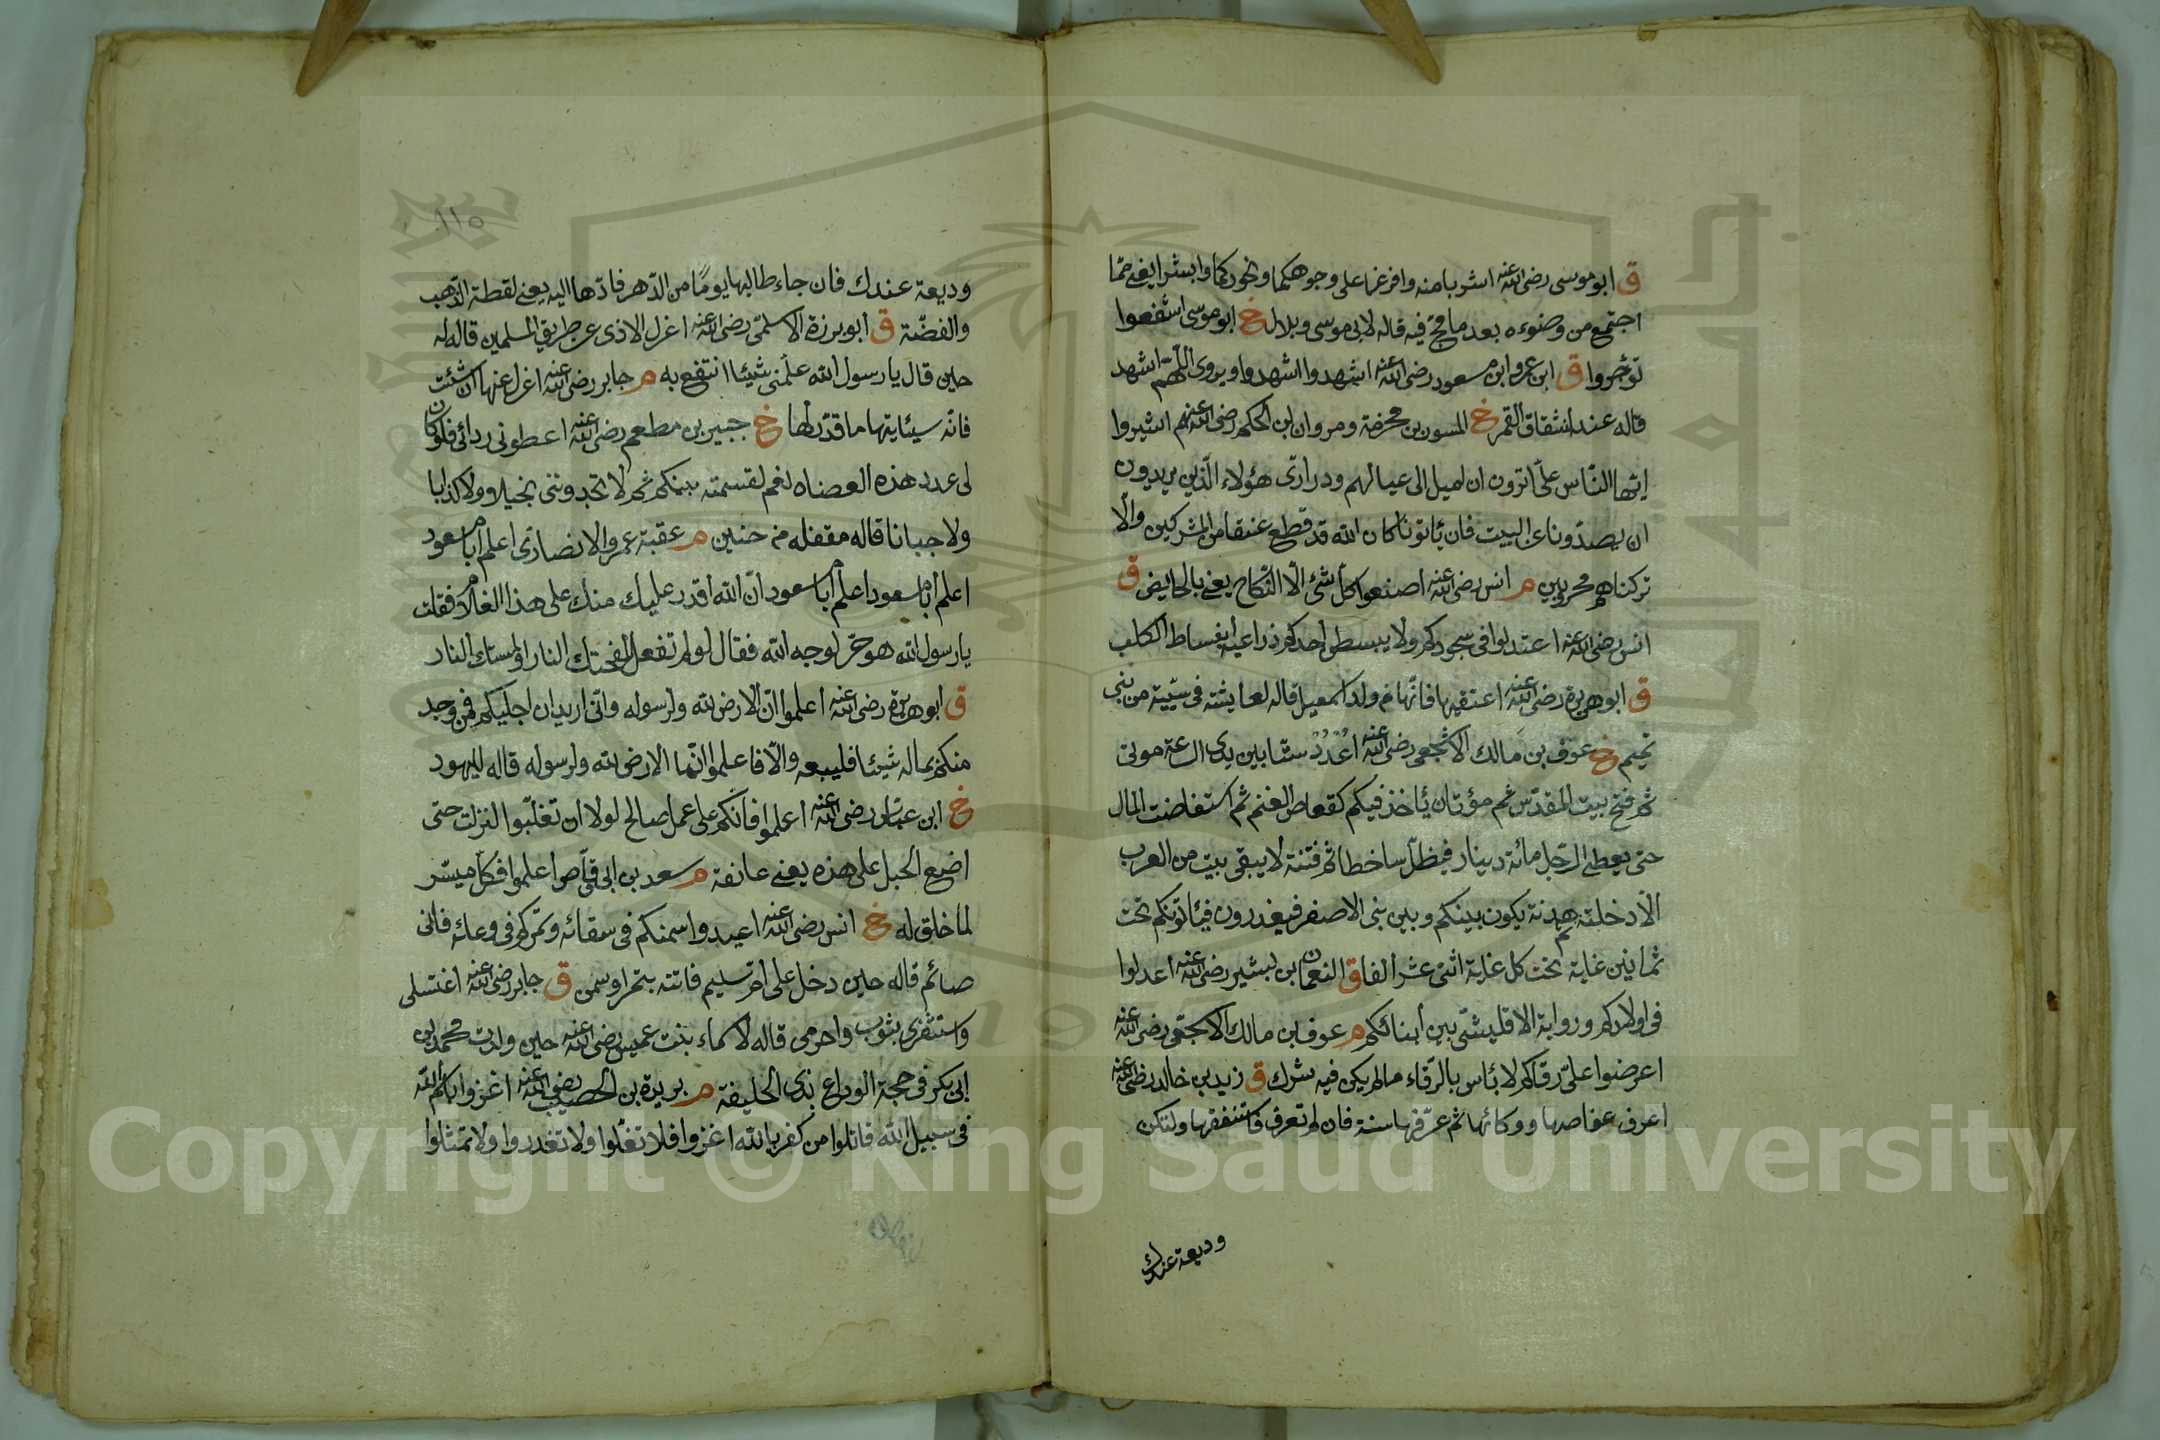 ق ابو موسى رضى الله عنه اشربا منه وافرغا على وجوهكما ونحوركما وابشرا يعنى مما
اجتمع من وضوءه بعد ما مج فيه قاله لابى موسى وبلال خ ابو موسى اشفعوا
توجروا ق ابن عمر وابن مسعود رضى الله عنه اشهدوا اشهدوا ويروى اللهم اشهد
قاله عند انشقاق القمر خ المسور بن مخرمة ومروان ابن الحكم رضى الله عنهم اشيروا
ايها الناس على اترون ان اميل الى عيالهم وذرارى هؤلاء الذين يريدون
ان يصدونا عن البيت فان يأتونا كان الله قد قطع عنقا من المشركين والا
تركناهم محروبين م انس رضى الله عنه اصنعوا كل شئ الا النكاح يعنى بالحايض ق
انس رضى الله عنه اعتدلوا فى سجودكم ولا يبسط احدكم ذراعيه انبساط الكلب
ق ابو هريرة رضى الله عنه اعتقيها فانها من ولد اسمعيل قاله لعايشة فى سبية من بنى
تميم خ عوف بن مالك الاشجعى رضى الله عنه اعدد ستا بين يدى الساعة موتى
ثم فتح بيت المقدس ثم موتان يأخذ فيكم كقعاص الغنم ثم استفاضت المال
حتى يعطى الرجل مائة دينار فيظل ساخطا ثم فتنة لا يبقى بيت من العرب
الا دخلته ثم هدنة يكون بينكم وبين بنى الاصفر فيغدرون فيأتونكم تحت
ثمانين غاية تحت كل غاية اثنى عشر الفا ق النعمان بن بشير رضى الله عنه اعدلوا
فى اولادكم ورواية الاقليشى بين ابنائكم م عوف بن مالك الاشجعى رضى الله عنه
اعرضوا على رقاكم لا بأس بالرقاء ما لم يكن فيه شرك ق زيد بن خالد رضى الله عنه
اعرف عفاصها ووكائها ثم عرفها سنة فان لم تعرف فاستنفقها ولتكن
وديعة عندك
١١٥
وديعة عندك فان جاء طالبها يوما من الدهر فادها اليه يعنى لقطة الذهب
والفضة ق ابو برزة الاسلمى رضى الله عنه اعزل الاذى عن طريق المسلمين قاله له
حين قال يا رسول الله علمنى شيئا انتفع به م جابر رضى الله عنه اعزل عنها ان شئت
فانه سيئاتيها ما قدر لها خ جبير بن مطعم رضى الله عنه اعطونى ردائى فلو كان
لى عدد هذه العضاه نعم لقسمته بينكم ثم لا تجدوننى بخيلا ولا كذابا
ولا جبانا قاله مقفله من حنين م عقبة عمرو الانصارى اعلم ابا مسعود
اعلم ابا مسعود اعلم ابا مسعود ان الله اقدر عليك منك على هذا الغلام فقلت
يا رسول الله هو حر لوجه الله فقال لو لم تفعل للفحتك النار او لمستك النار
ق ابو هريرة رضى الله عنه اعلموا ان الارض لله ولرسوله وانى اريد ان اجليكم فمن وجد
منكم بماله شيئا فليبعه والا فاعلموا انما الارض لله ولرسوله قاله لليهود
خ ابن عباس رضى الله عنه اعلموا فانكم على عمل صالح لولا ان تغلبوا لنزلت حتى
اضع الحبل على هذه يعنى عاتقه م سعد بن ابى وقاص اعلموا فكل ميسر
لما خلق له خ انس رضى الله عنه اعيدوا سمنكم فى سقائه وتمركم فى وعائه فانى
صائم قاله حين دخل على ام سليم فاتته بتمر او سمن ق جابر رضى الله عنه اغتسلى
واستثفرى بثوب واحرمى قاله لاسماء بنت عميس رضى الله عنه حين ولدت محمد بن
ابى بكر فى حجة الوداع بذى الحليفة م بريدة بن الحصيب رضى الله عنه اغزوا باسم الله
فى سبيل الله قاتلوا من كفر بالله اغزوا فلا تغلوا ولا تغدروا ولا تمثلوا
Copyright © King Saud University